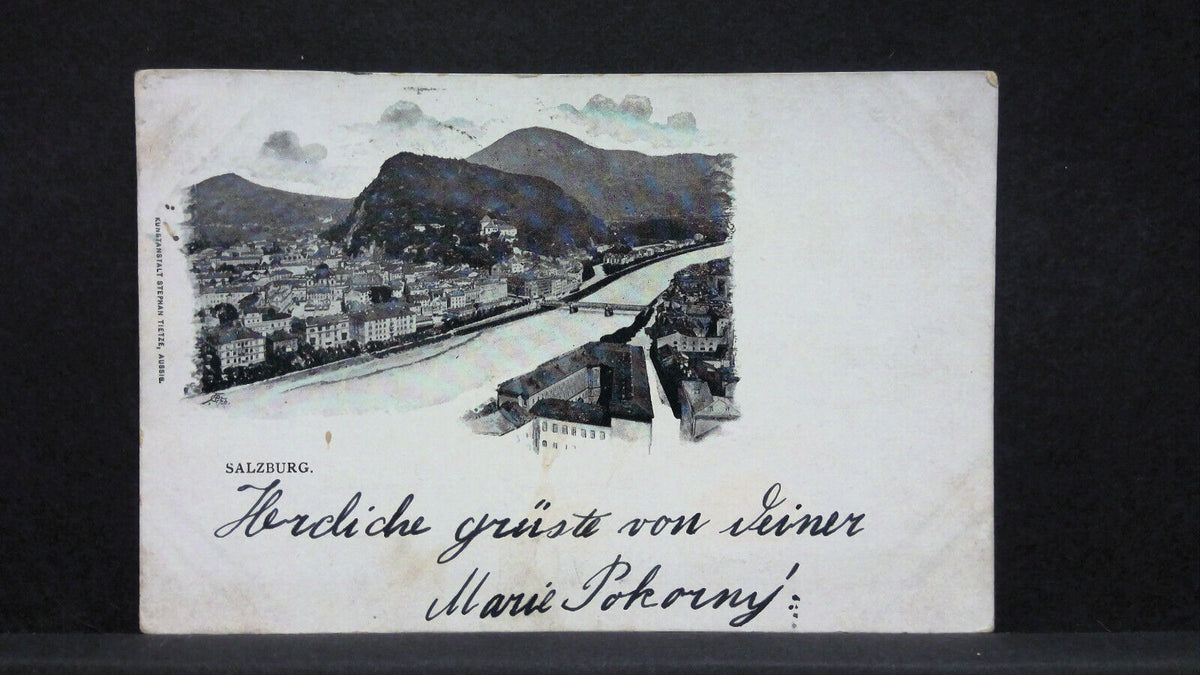 KUNSTANSTALT STEPHAN TIETZE, AUSSIG.
SALZBURG.
Herdliche grüste von deiner
Marie Pokorny!